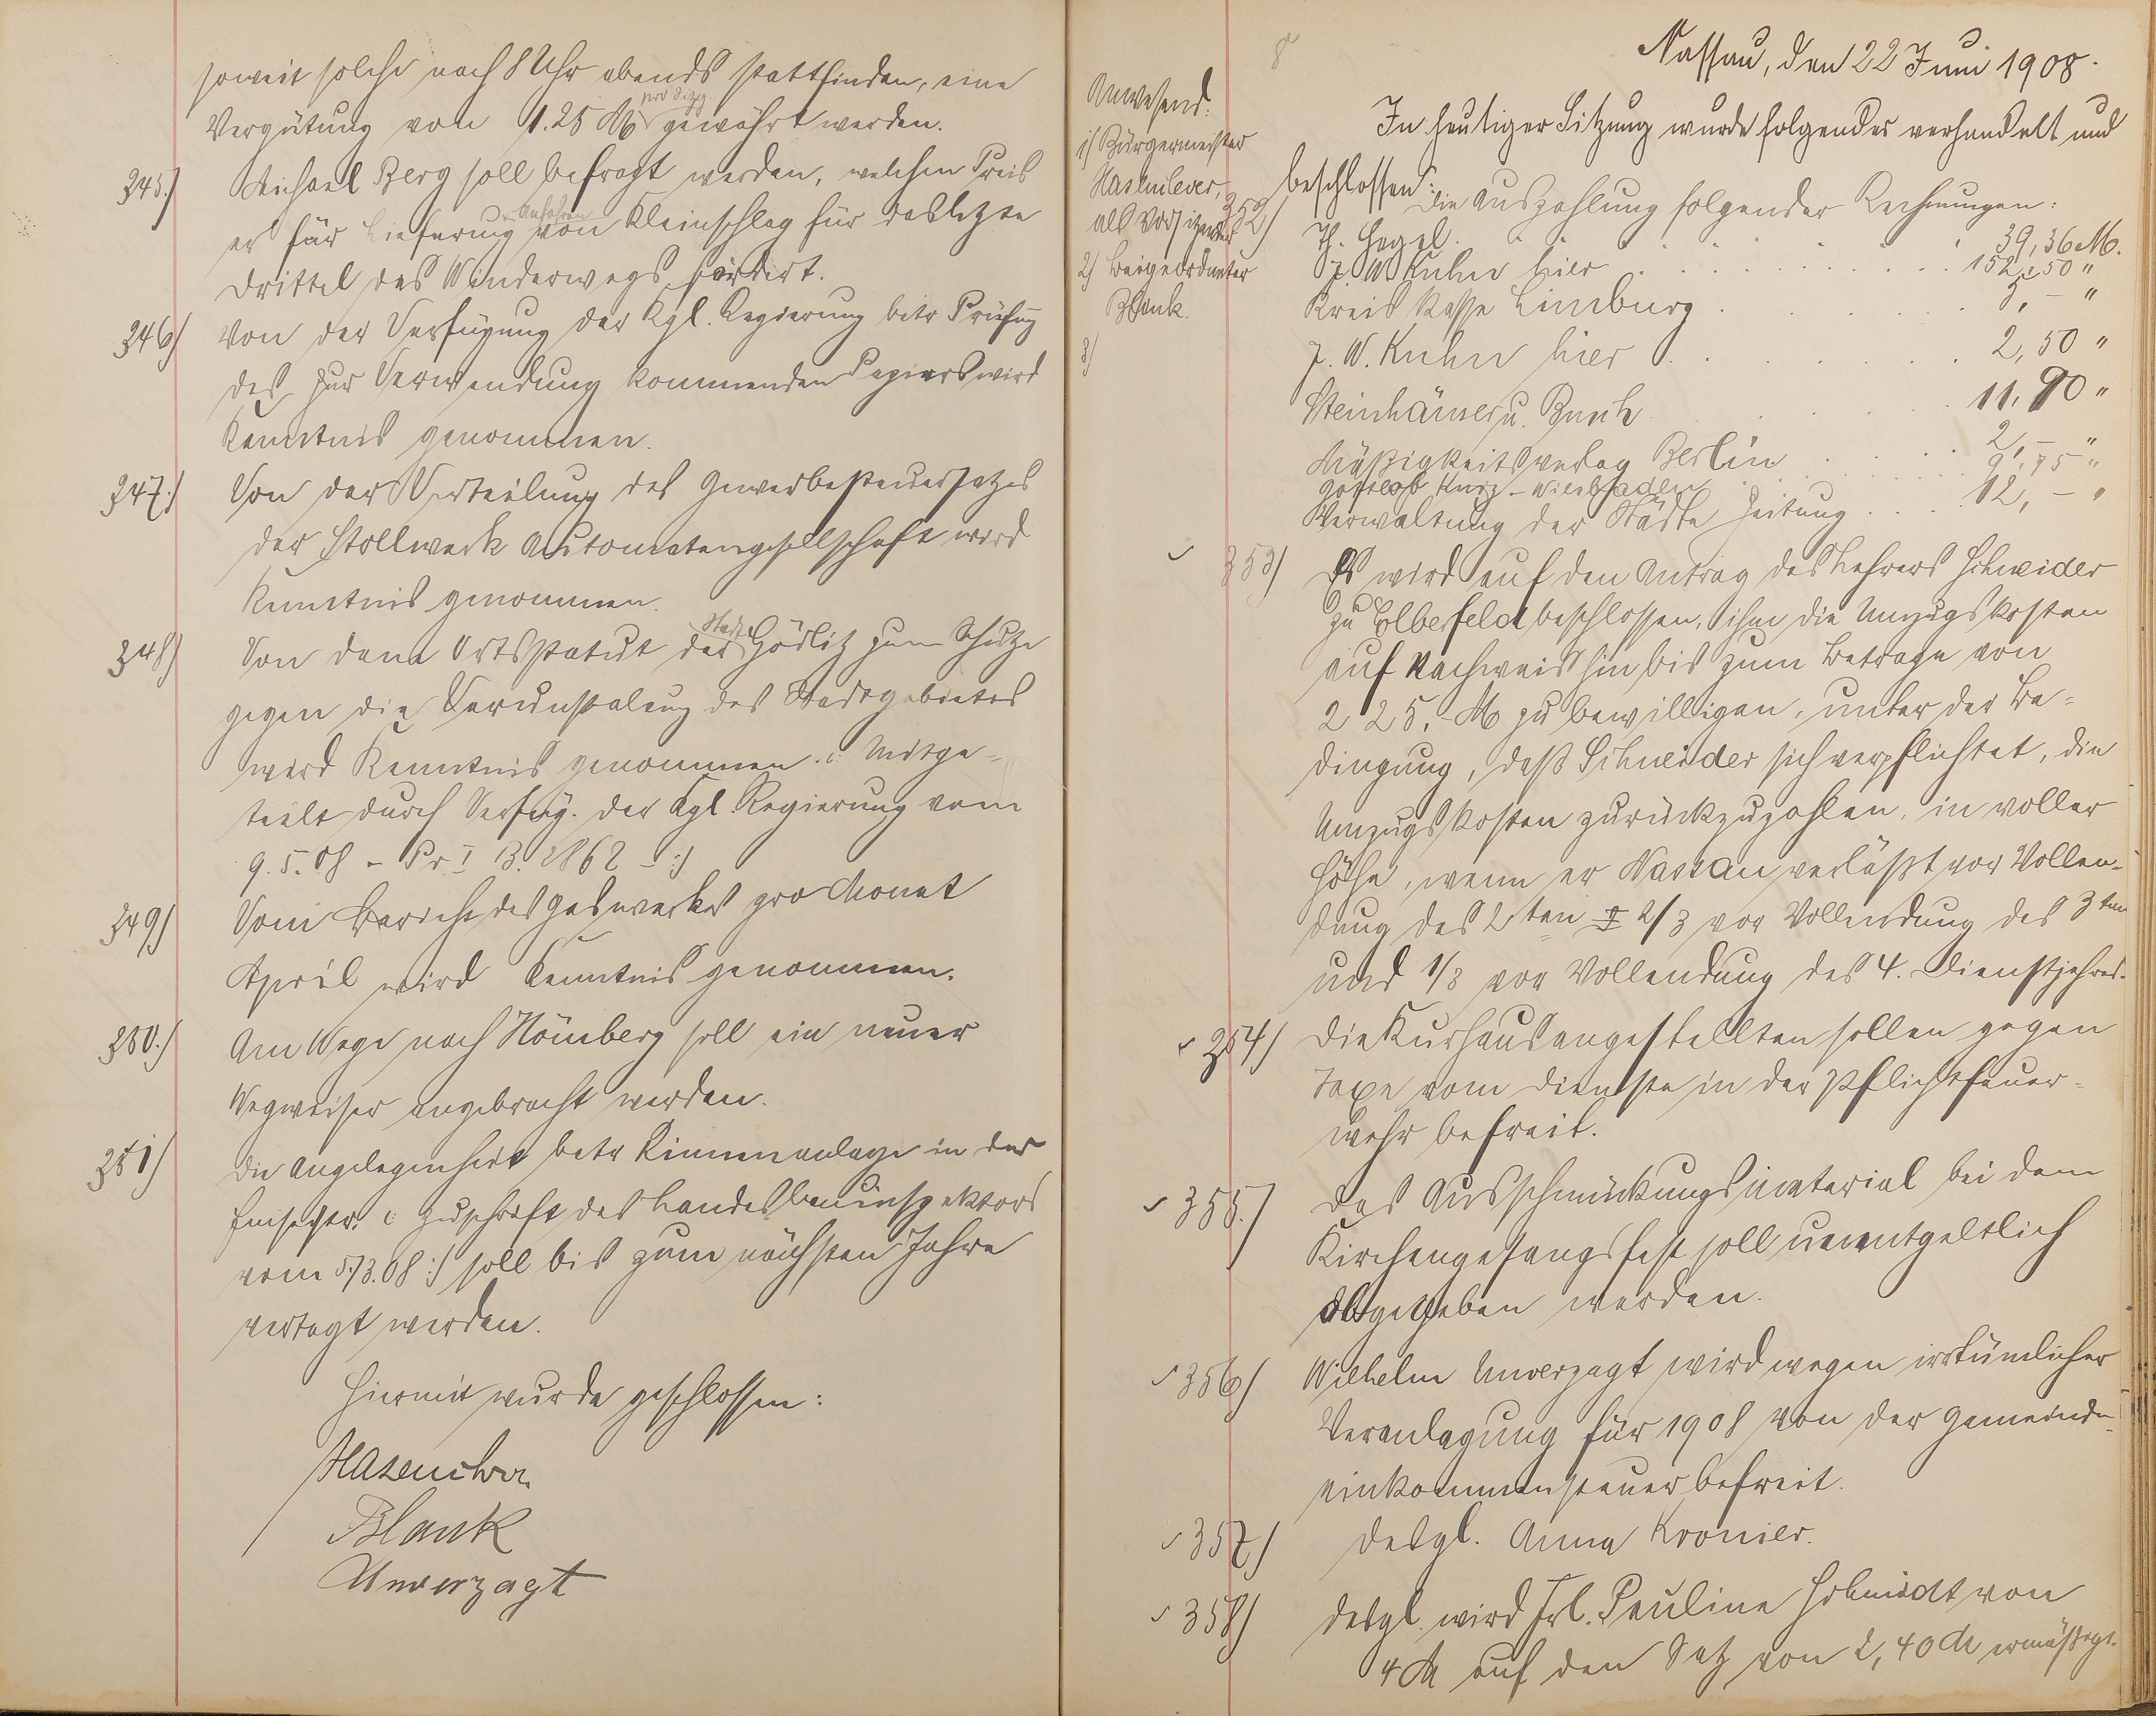 soweit solche nach 8 Uhr abends stattfinden, eine
Vergütung von 1.25 M pro Sitzg gewährt werden.
345.) Michael Berg soll befragt werden, welchen Preis
er für Lieferung u. Anfahren von Kleinschlag für das letzte
Drittel des Winderwegs fordert.
346) Von der Verfügung der Kgl. Regierung betr Prüfung
des zur Verwendung kommenden Papiers wird
Kenntnis genommen.
347.) Von der Verteilung des Gewerbesteuersatzes
der Stollwerk Automatengesellschaft wird
Kenntnis genommen.
348) Von dem Ortsstatut der Stadt Görlitz zum Schutze
gegen die Verunstaltung des Stadtgebietes
wird Kenntnis genommen. (: Mitge-
teilt durch Verfüg. der Kgl. Regierung vom
9.5.08 - Pr. I 13. 2862 - :)
349) Vom Bericht des Gaswerkes pro Monat
April wird Kenntnis genommen.
350.) Am Wege nach Hömberg soll ein neuer
Wegweiser angebracht werden.
351) Die Angelegenheit betr Rinnenanlage in der
Emserstr. (: Zuschrift des Landesbauinspektors
vom 5/3.08 :) soll bis zum nächsten Jahre
vertagt werden.
Hiermit wurde geschlossen:
Hasenclever
Blank
Unverzagt
8
Nassau, den 22 Juni 1908.
Anwesend:
1) Bürgermeister
Hasenclever,
als Vorsitzender
2) Beigeordneter
Blank.
3)
In heutiger Sitzung wurde folgendes verhandelt und
beschlossen:
352) Die Auszahlung folgender Rechnungen:
Th. Hegel . . . 39,36 M.
J. W. Kuhn hier . . . 152,50 "
Kreis Kasse Limburg . . . 5,- "
J. W. Kuhn hier . . . 2,50 "
Steinhäuser u. Bunk . . . 11,90 "
Mäßigkeitsverlag Berlin . . . 2,- "
Gottlob Kurz - Wiesbaden . . . 9,75 "
Verwaltung der Städte Zeitung . . . 12,- "
353) Es wird auf den Antrag des Lehrers Schneider
zu Elberfeld beschlossen, ihm die Umzugskosten
auf Nachweis hin bis zum Betrage von
225,- M zu bewilligen, unter der Be-
dingung, daß Schneider sich verpflichtet, die
Umzugskosten zurückzuzahlen, in voller
Höhe, wenn er Nassau verläßt vor Vollen-
dung des 2ten 2/3 vor Vollendung des 3ten
und 1/3 vor Vollendung des 4. Dienstjahres.
354) Die Kurhausangestellten sollen gegen
Taxe vom Dienste in der Pflichtfeuer-
wehr befreit.
355.) Das Ausschmückungsmaterial bei dem
Kirchengesangsfest soll unentgeltlich
abgegeben werden.
356) Wilhelm Unverzagt wird wegen irrtümlicher
Veranlagung für 1908 von der Gemeinde-
einkommensteuer befreit.
357) Desgl. Anna Kronier.
358) Desgl. wird Frl. Pauline Schmidt von
4 M auf den Satz von 2,40 M ermäßigt.